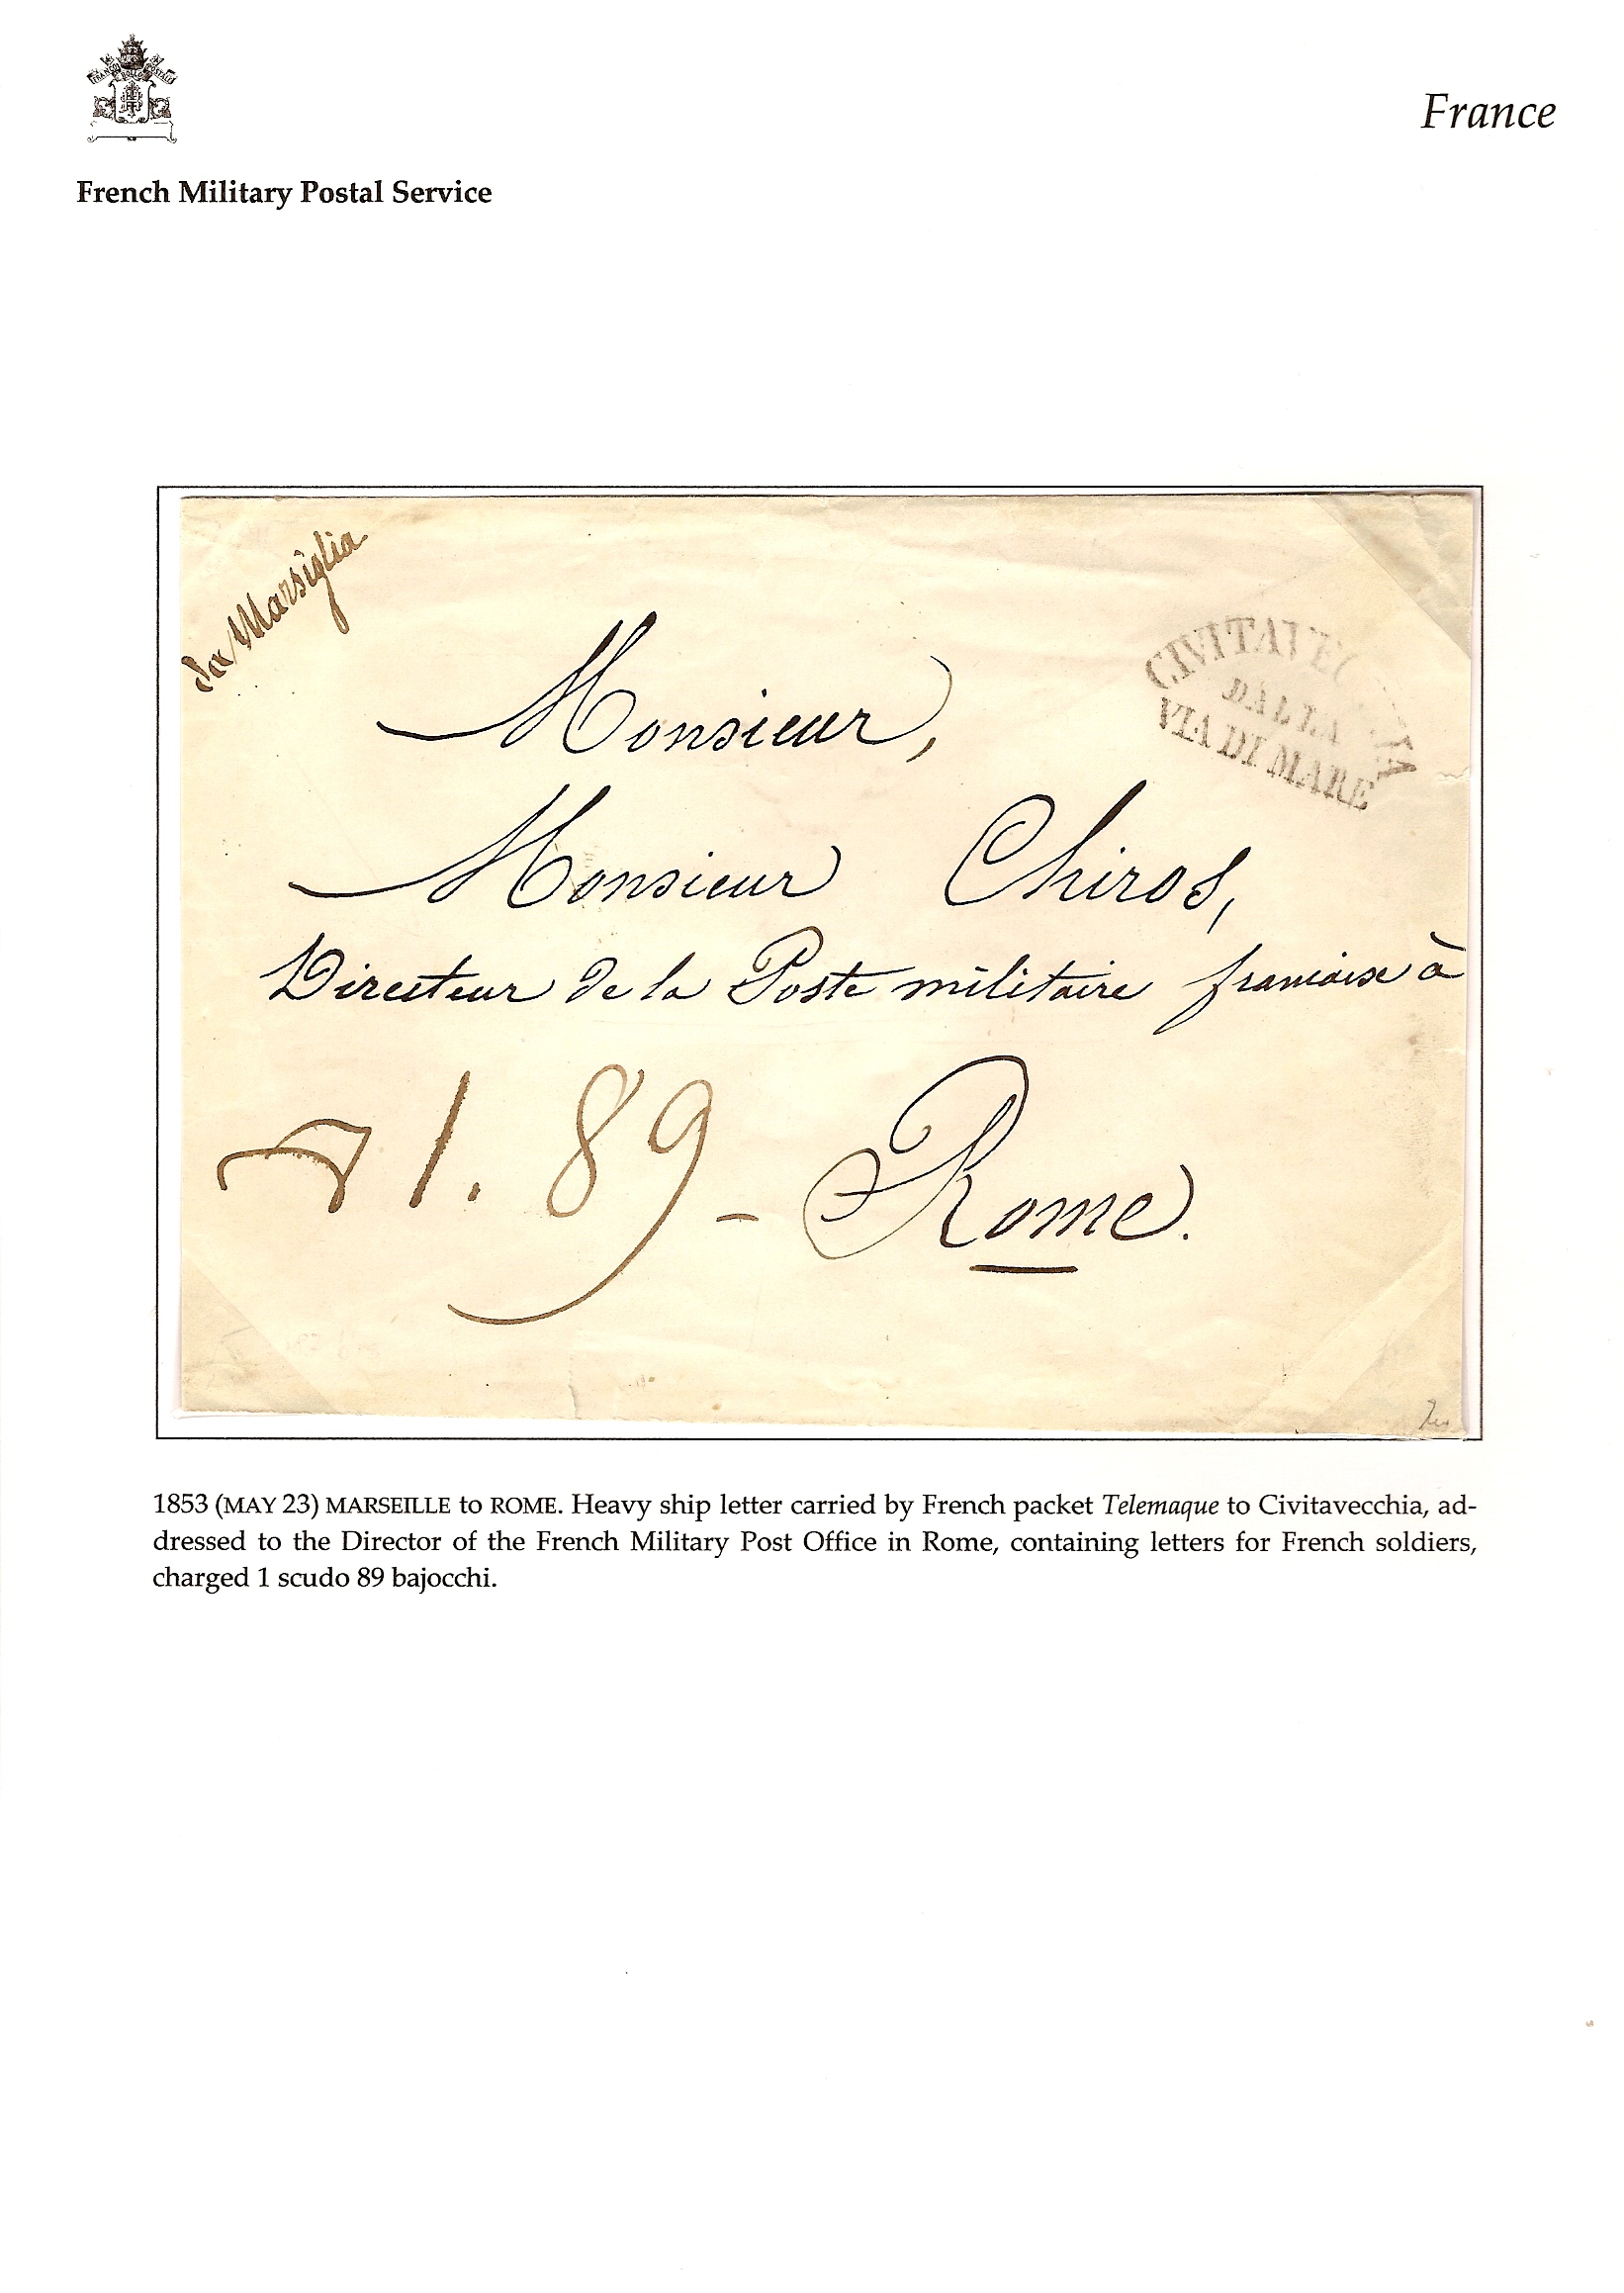 France
French Military Postal Service
da Marsiglia
Monsieur,
CIVITAVEC IA
DALLA
VIA DI MARE
Monsieur Chiros,
Directeur de la Poste militaire francaise à
1. 89 -
Rome.
1853 (MAY 23) MARSEILLE to ROME. Heavy ship letter carried by French packet Telemaque to Civitavecchia, ad-
dressed to the Director of the French Military Post Office in Rome, containing letters for French soldiers,
charged 1 scudo 89 bajocchi.